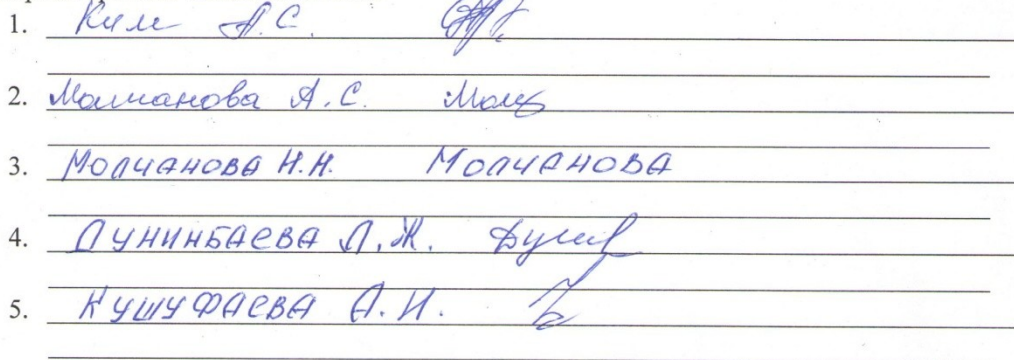 1. Ким А.С.
2. Молчанова А.С. Молч
3. МОЛЧАНОВА Н.Н. МОЛЧАНОВА
4. ДУНИНБАЕВА Л.Ж.
5. КУШУФАЕВА А.И.